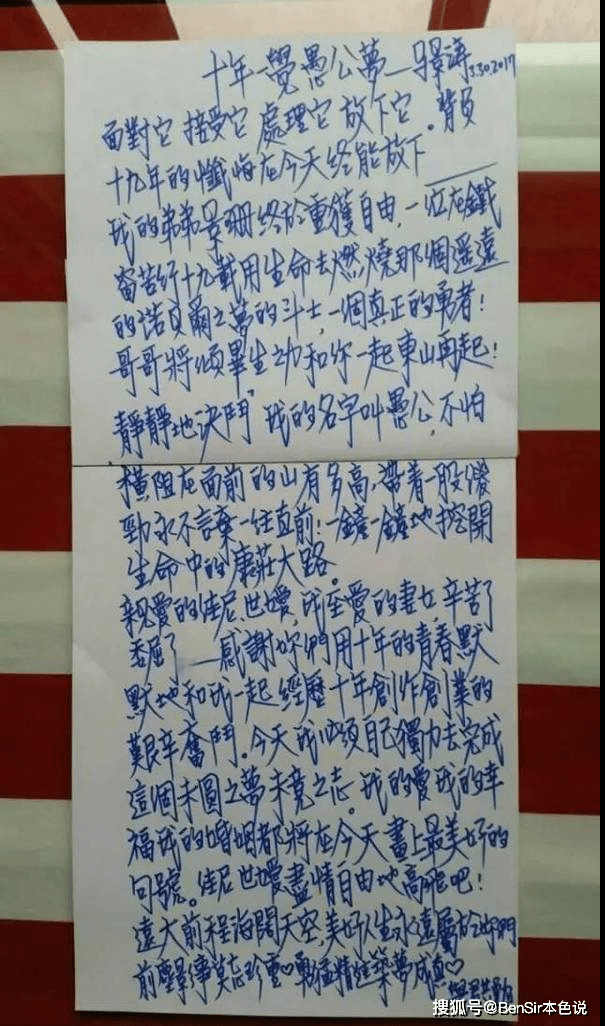 十年一覺愚公夢—馬景濤 3.30.2017
面對它 接受它 處理它 放下它。背負
十九年的懺悔在今天终能放下——
我的弟弟景珊終於重獲自由,一位在鐵
窗苦行十九載用生命去燃燒那個遥遠
的諾貝爾之夢的斗士,一個真正的勇者!
哥哥將傾畢生之力和你一起東山再起!
靜靜地決鬥 我的名字叫愚公,不怕
橫阻在面前的山有多高,帶着一股傻
勁永不言棄一往直前!一鏟一鏟地挖開
生命中的康莊大路。
親愛的佳尼,世嬡,我至愛的妻女,辛苦了
委屈了——感謝妳們用十年的青春默
默地和我一起 經歷十年創作創業的
艱辛奮鬥。今天我必須自己獨力去完成
這個未圓之夢未竟之志。我的愛我的幸
福我的婚姻都將在今天畫上最美好的
句號。佳尼 世嬡 盡情自由地高飛吧!
遠大前程海闊天空,美好人生永遠屬於妳們
前塵舊事莫忘珍重♡勇猛精進築夢成真♡
搜狐号@BenSir本色说